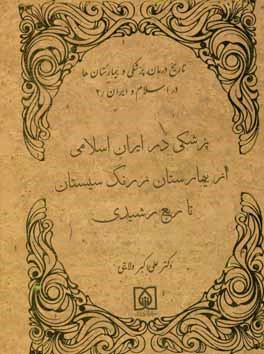 تاریخ درمان پزشکی و بیمارستان ها
در اسلام و ایران / ۲
پزشکی در ایران اسلامی
از بیمارستان زرنگ سیستان
تا ربع رشیدی
دکتر علی اکبر ولایتی